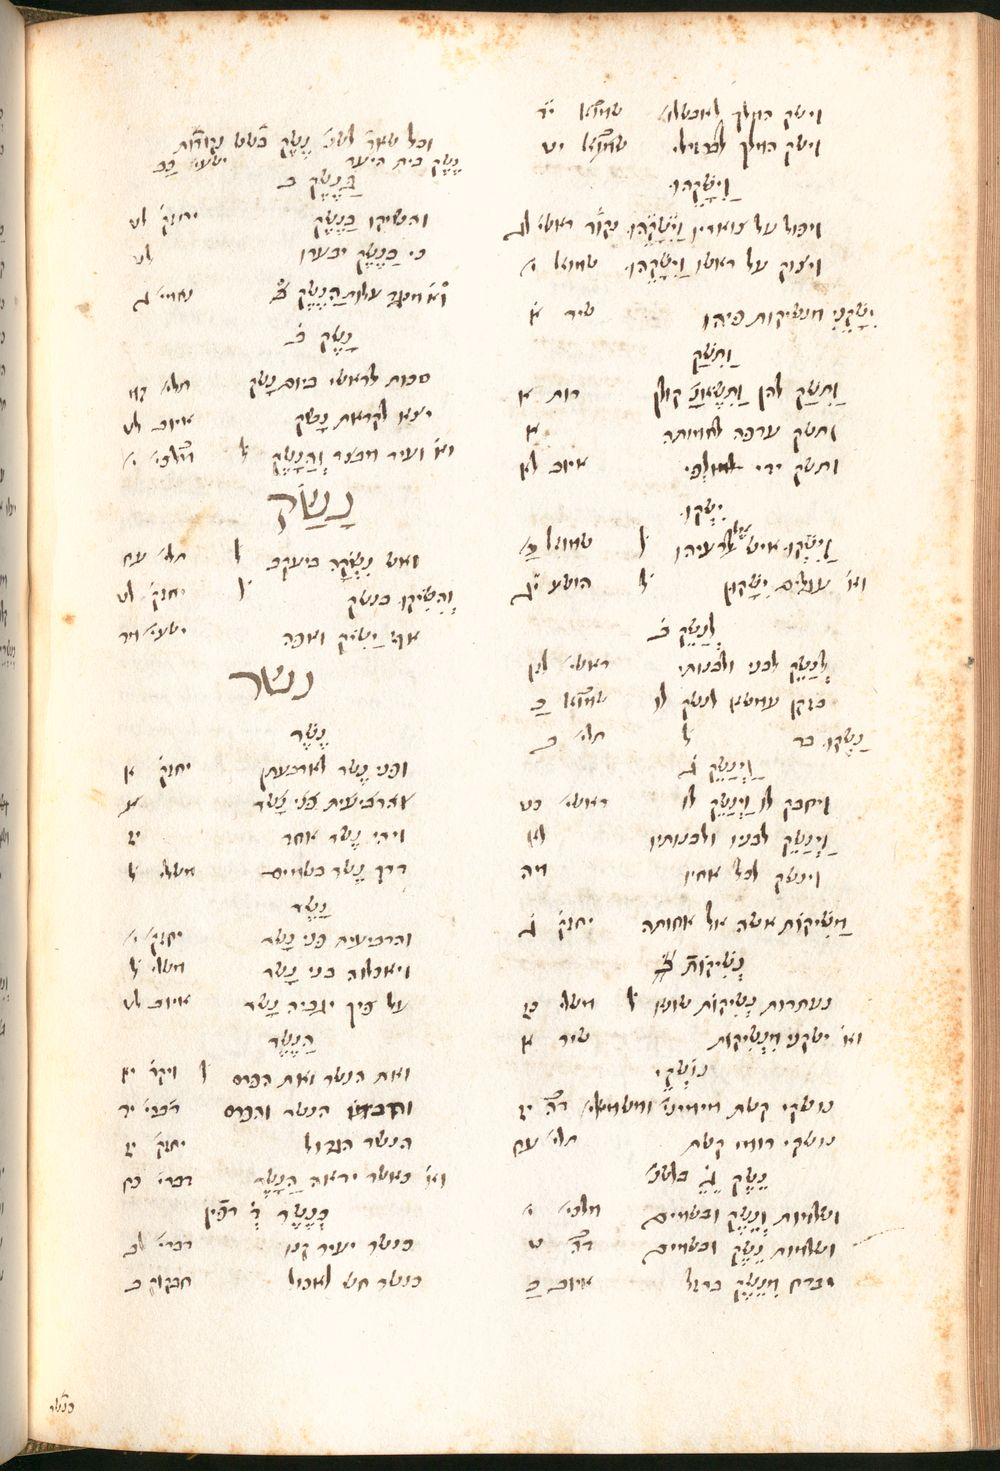 וישק המלך לאבשלום שמוא׳ יד
וישק המלך לברזילי שמוא׳ יט
וַיִשָקֵהו
ויפול על צואריו וַיִשָקֵהו נקוד ראשי׳ לג
ויצוק על ראשו וַיִשָקֵהו שמואל י׳
יִשָקֵנִי מנשיקות פיהו שיר א׳
וַתִשַק
וַתִשַק להן וַתִשֶאנָה קולן רות א
ותשק ערפה לחמותה א
ותשק ידי לפי איוב לא
יִשְקו
וַיִשְקו איש את רעיהו ל׳ שמואל כ׳
וא׳ עגלים יִשָקון ל׳ הושע יג
לְנַשֵק ב׳
לְנַשֵק לבני ולבנותי ראשי׳ לא
בזקן עמשא לנשק לו שמוא׳ כ
נַשְקו בר ל׳ תלי׳ ב
וַיְנַשֵק ג׳
ויחבק לו וַיְנַשֵק לו ראשי׳ כט
וַיְנַשֵק לבניו ולבנותיו לא
וינשק לכל אחיו מה
מַשִיקוֹת אשה אל אחותה יחזק׳ ג
נְשִיקוֹת ב׳
נעתרות נְשִיקוֹת שונא ל׳ משלי כז
וא׳ ישקני מִנְשִיקות שיר א
נוֹשְקֵי
נושקי קשת מימינ׳ ומשמאל׳ דה׳ יב
נושקי רומי קשת תלי׳ עח
נֵשֶק ג׳ בלשנ׳
ושלמות וְנֵשֶק ובשמים מלכי׳ י׳
ושלמות נֵשֶק ובשמים דה׳ ט
יברח מִנֵשֶק ברזל איוב כ
וכל שאר לשנ׳ נֶשֶק בשש נקודות
נֶשֶק בית היער ישעי׳ כב
בְנֶשֶק ב
והשיקו בְנֶשֶק יחזק׳ לט
כי בַנֶשֶק יבערו לט
וא׳ מנגב עלות הַנֶשֶק נחמי׳ ג
נָשֶק ב׳
סכות לראשי ביום נָשֶק תלי׳ קמ
יצא לקראת נָשֶק איוב לט
וא׳ ועיר מבצר וְהַנָשֶק ל׳ מלכי׳ י׳
נָשַׂק
ואש נִשְקָה ביעקב ל׳ תלי׳ עח
וְהִשִיקו בנשק ל׳ יחזק׳ לט
אף יַשִיק ואפה ישעי׳ מד
נשר
נֶשֶר
ופני נֶשֶר לארבעתן יחזק׳ א
והרביעית פני נשר י׳
ויהי נֶשֶר אחד יז
דרך נֶשֶר בשמים משלי ל
נָשֶר
והרביעית פני נָשֶר יחזק׳ י׳
ויאכלוה בני נָשֶר משלי ל
על פיך יגביה נָשֶר איוב לט
הַנֶשֶר
ואת הנשר ואת הפרס ל׳ ויקר׳ יא
הנשר והפרס דברי׳ יד
הנשר הגדול יחזק׳ יז
וא׳ כאשר יראה הַנָשֶר דברי׳ כח
כְנֶשֶר ד׳ רפין
כנשר יעיר קנו דברי׳ לב
כנשר חש לאכול חבקוק ב
כנשר